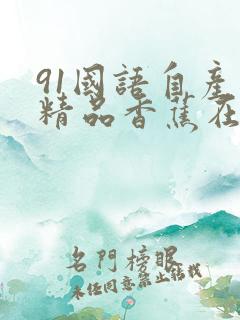 91国語自産
精品香蕉在
名門榜眼
未任同意禁止转载